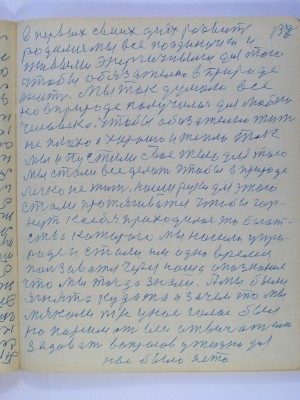 в первых своих днях развиту
родились мы все поздынули и
живыми энергичными для того
чтобы обязательно в природе
жить. Мы так думали все
но в природе получилось для любого
человека. чтобы обязательно жить
не плохо а хорошо и тепло. Так
мы и пустили своё тело для того
мы стали все делать чтобы в природе
легко не жить. наши руки для этого
стали протягиваться чтобы
к себе приходилося то богат-
ство которого мы нашли у при-
роде и стали им одно время
пользоваться через наше сознание
что мы тогда знали. А мы были
заняты куда то и зачем то мы
мы не голое были
но нам от им отвечать или
задават вопросов у жизни для
нас было нето